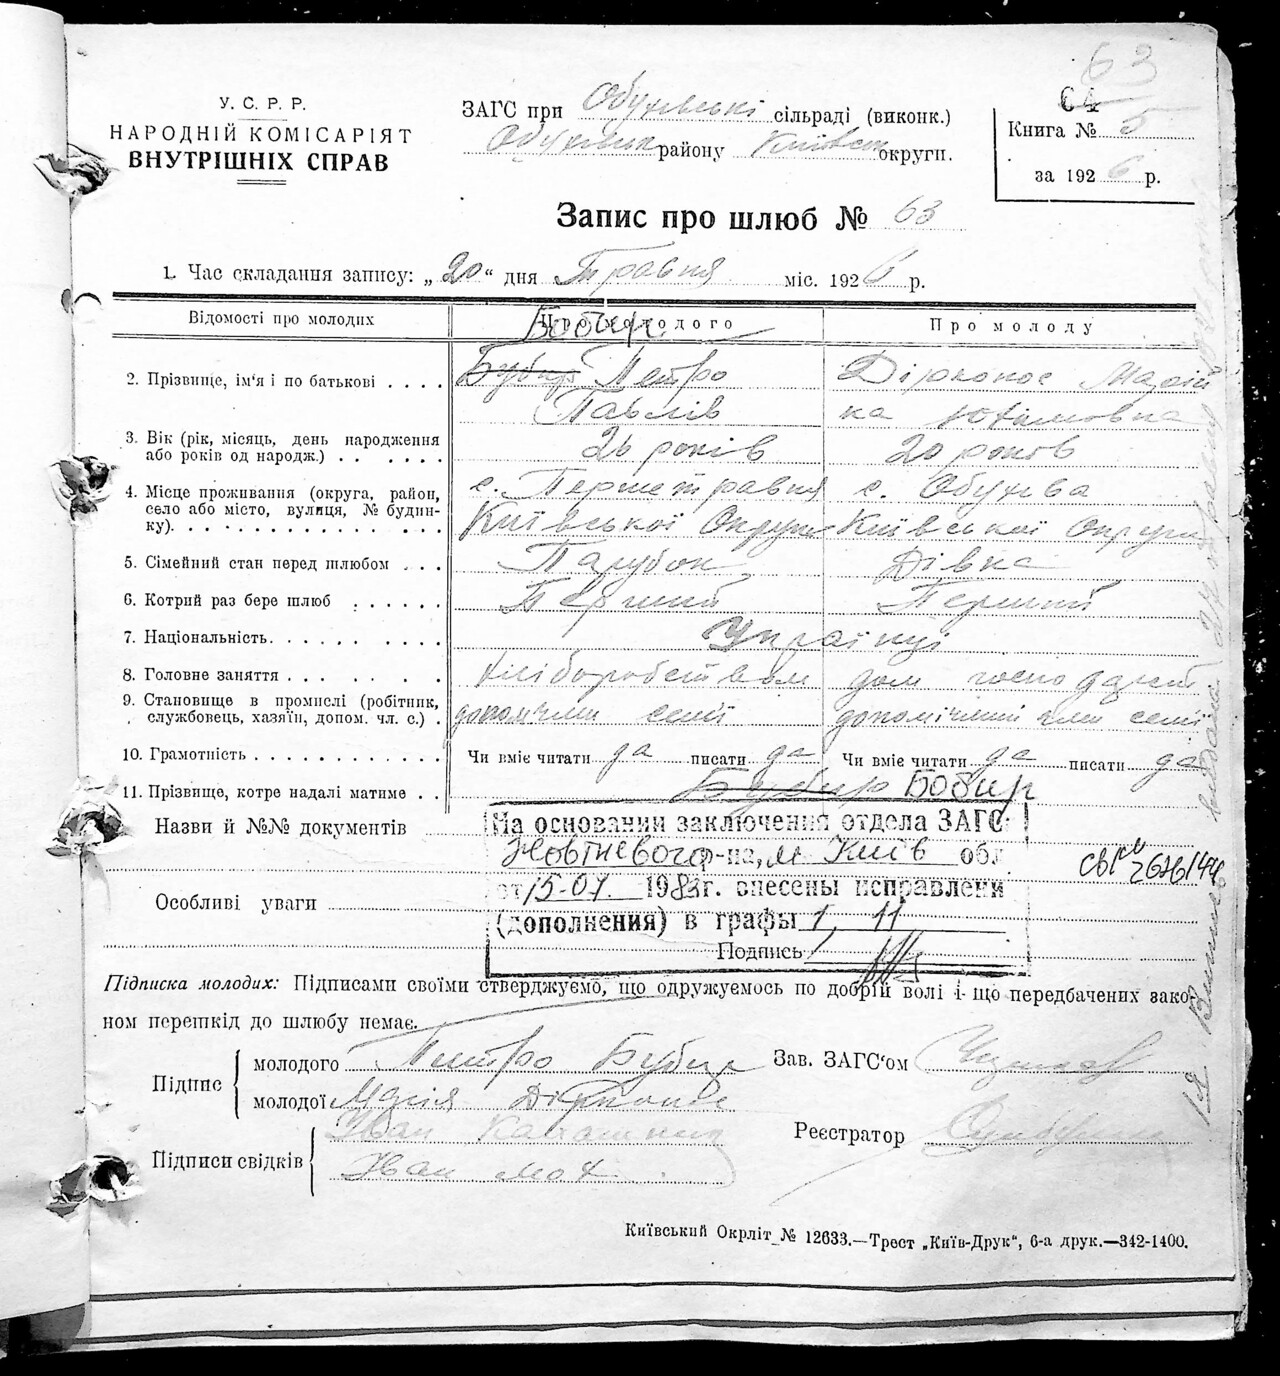 63
64
У. С. Р. Р.
НАРОДНІЙ КОМІСАРІЯТ
ВНУТРІШНІХ СПРАВ
ЗАГС при Обухівські сільраді (виконк.)
районy Київськ округи.
Книга № 5
за 1926 р.
Запис про шлюб № 63
1. Час складання запису: „20“ дня Травня міс. 1926 р.
Відомості про молодих
Про молодого
Про молоду
Бобир
2. Прізвище, ім'я і по батькові . . . . Бубир Петро Дірконос Марій
Павлів ка Юхимовна
3. Вік (рік, місяць, день народження
або років од народж.) . . . . . . 26 років 20 років
4. Місце проживання (округа, район,
село або місто, вулиця, № будин-
ку). . . . . . . . . . . . . .
с. Першетравня с. Обухова
Київської Округи Київської Округи
5. Сімейний стан перед шлюбом . . . Парубок Дівка
6. Котрий раз бере шлюб . . . . . . Перший Перший
7. Національність. . . . . . . . . Українці
8. Головне заняття . . . . . . . . хліборобством дом
9. Становище в промислі (робітник,
службовець, хазяїн, допом. чл. с.) . семї семї
10. Грамотність . . . . . . . . . . . Чи вміє читати да писати да Чи вміє читати да писати да
11. Прізвище, котре надалі матиме . . Бубир Бобир
Назви й №№ документів
На основании заключения отдела ЗАГС
Жовтневого р-на, м. Київ обл
от 15-07. 1983г. внесены исправлени
(дополнения) в графы 1, 11
Подпись
Особливі уваги
Підписка молодих: Підписами своїми стверджуємо, що одружуємось по добрій волі і що передбачених зако-
ном перешкід до шлюбу немає.
Підпис
молодого Петро Бубир
молодої Марія Дірконос
Зав. ЗАГС'ом
Підписи свідків
Іван
Іван Мох
Реєстратор
Київський Окрліт № 12633.—Трест „Київ-Друк“, 6-а друк.—342-1400.